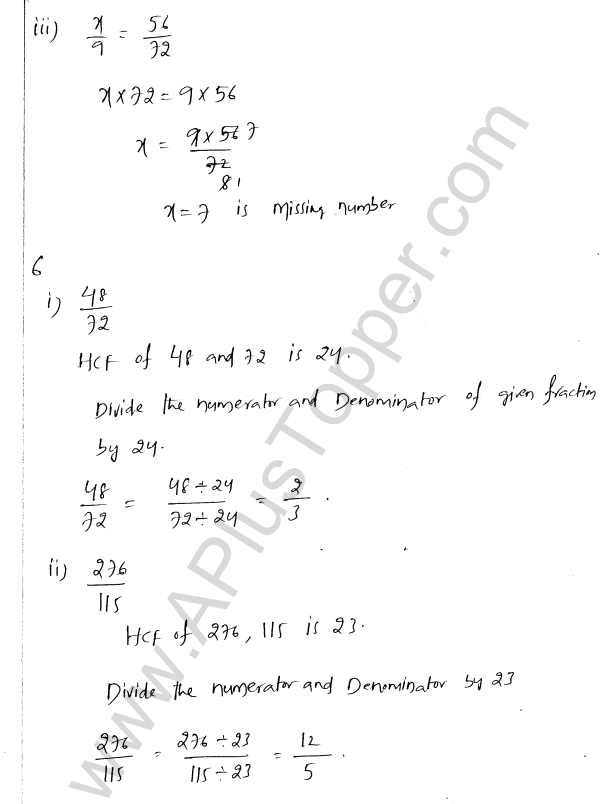 iii) x/9 = 56/72
x × 72 = 9 × 56
x = 9 × 56 7 / 72
8 1
x = 7 is missing number
6
i) 48/72
HCF of 48 and 72 is 24.
Divide the numerator and Denominator of given fraction
by 24.
48/72 = 48 ÷ 24 / 72 ÷ 24 = 2/3 .
ii) 276/115
HCF of 276, 115 is 23.
Divide the numerator and Denominator by 23
276/115 = 276 ÷ 23 / 115 ÷ 23 = 12/5 .
www.APlusTopper.com